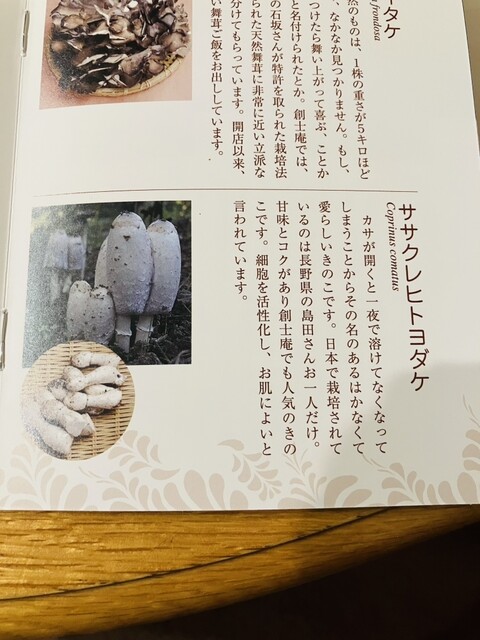 タケ
frondosa
然のものは、1株の重さが5キロほど
、なかなか見つかりません。もし、
つけたら舞い上がって喜ぶ、ことか
と名付けられたとか。創士庵では、
の石坂さんが特許を取られた栽培法
られた天然舞茸に非常に近い立派な
分けてもらっています。開店以来、
い舞茸ご飯をお出ししています。
ササクレヒトヨダケ
Coprinus comatus
カサが開くと一夜で溶けてなくなって
しまうことからその名のあるはかなくて
愛らしいきのこです。日本で栽培されて
いるのは長野県の島田さんお一人だけ。
甘味とコクがあり創士庵でも人気のきの
こです。細胞を活性化し、お肌によいと
言われています。